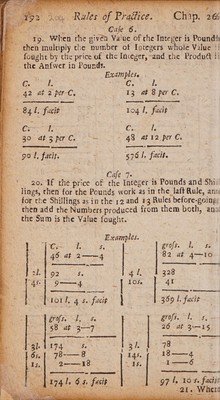 192 Rules of Practice. Chap. 26
Case 6.
19. When the given Value of the Integer is Pounds
then multiply the number of Integers whole Value is
sought by the price of the Integer, and the Product is
the Answer in Pounds.
Examples.
C. l. C. l.
42 at 2 per C. 13 at 8 per C.
84 l. facit 104 l. facit
C. l. C. l.
30 at 3 per C. 48 at 12 per C.
90 l. facit. 576 l. facit.
Case 7.
20. If the price of the Integer is Pounds and Shil
lings, then for the Pounds work as in the last Rule, and
for the Shillings as in the 12 and 13 Rules before-going
then add the Numbers produced from them both, and
the Sum is the Value sought.
Examples.
C. l. s. gross. l. s.
46 at 2—4 82 at 4—10
2l. 92 s. 4 l. 328
4s. 9—4 10s. 41
101 l. 4 s. facit 369 l. facit
gross. l. s. gross. l. s.
58 at 3—7 26 at 3—15
3l. 174 s. 3 l. 78
6s. 78—8 14s. 18—4
1s. 2—18 1s. 1—6
174 l. 6 s. facit 97 l. 10 s. facit
21. When